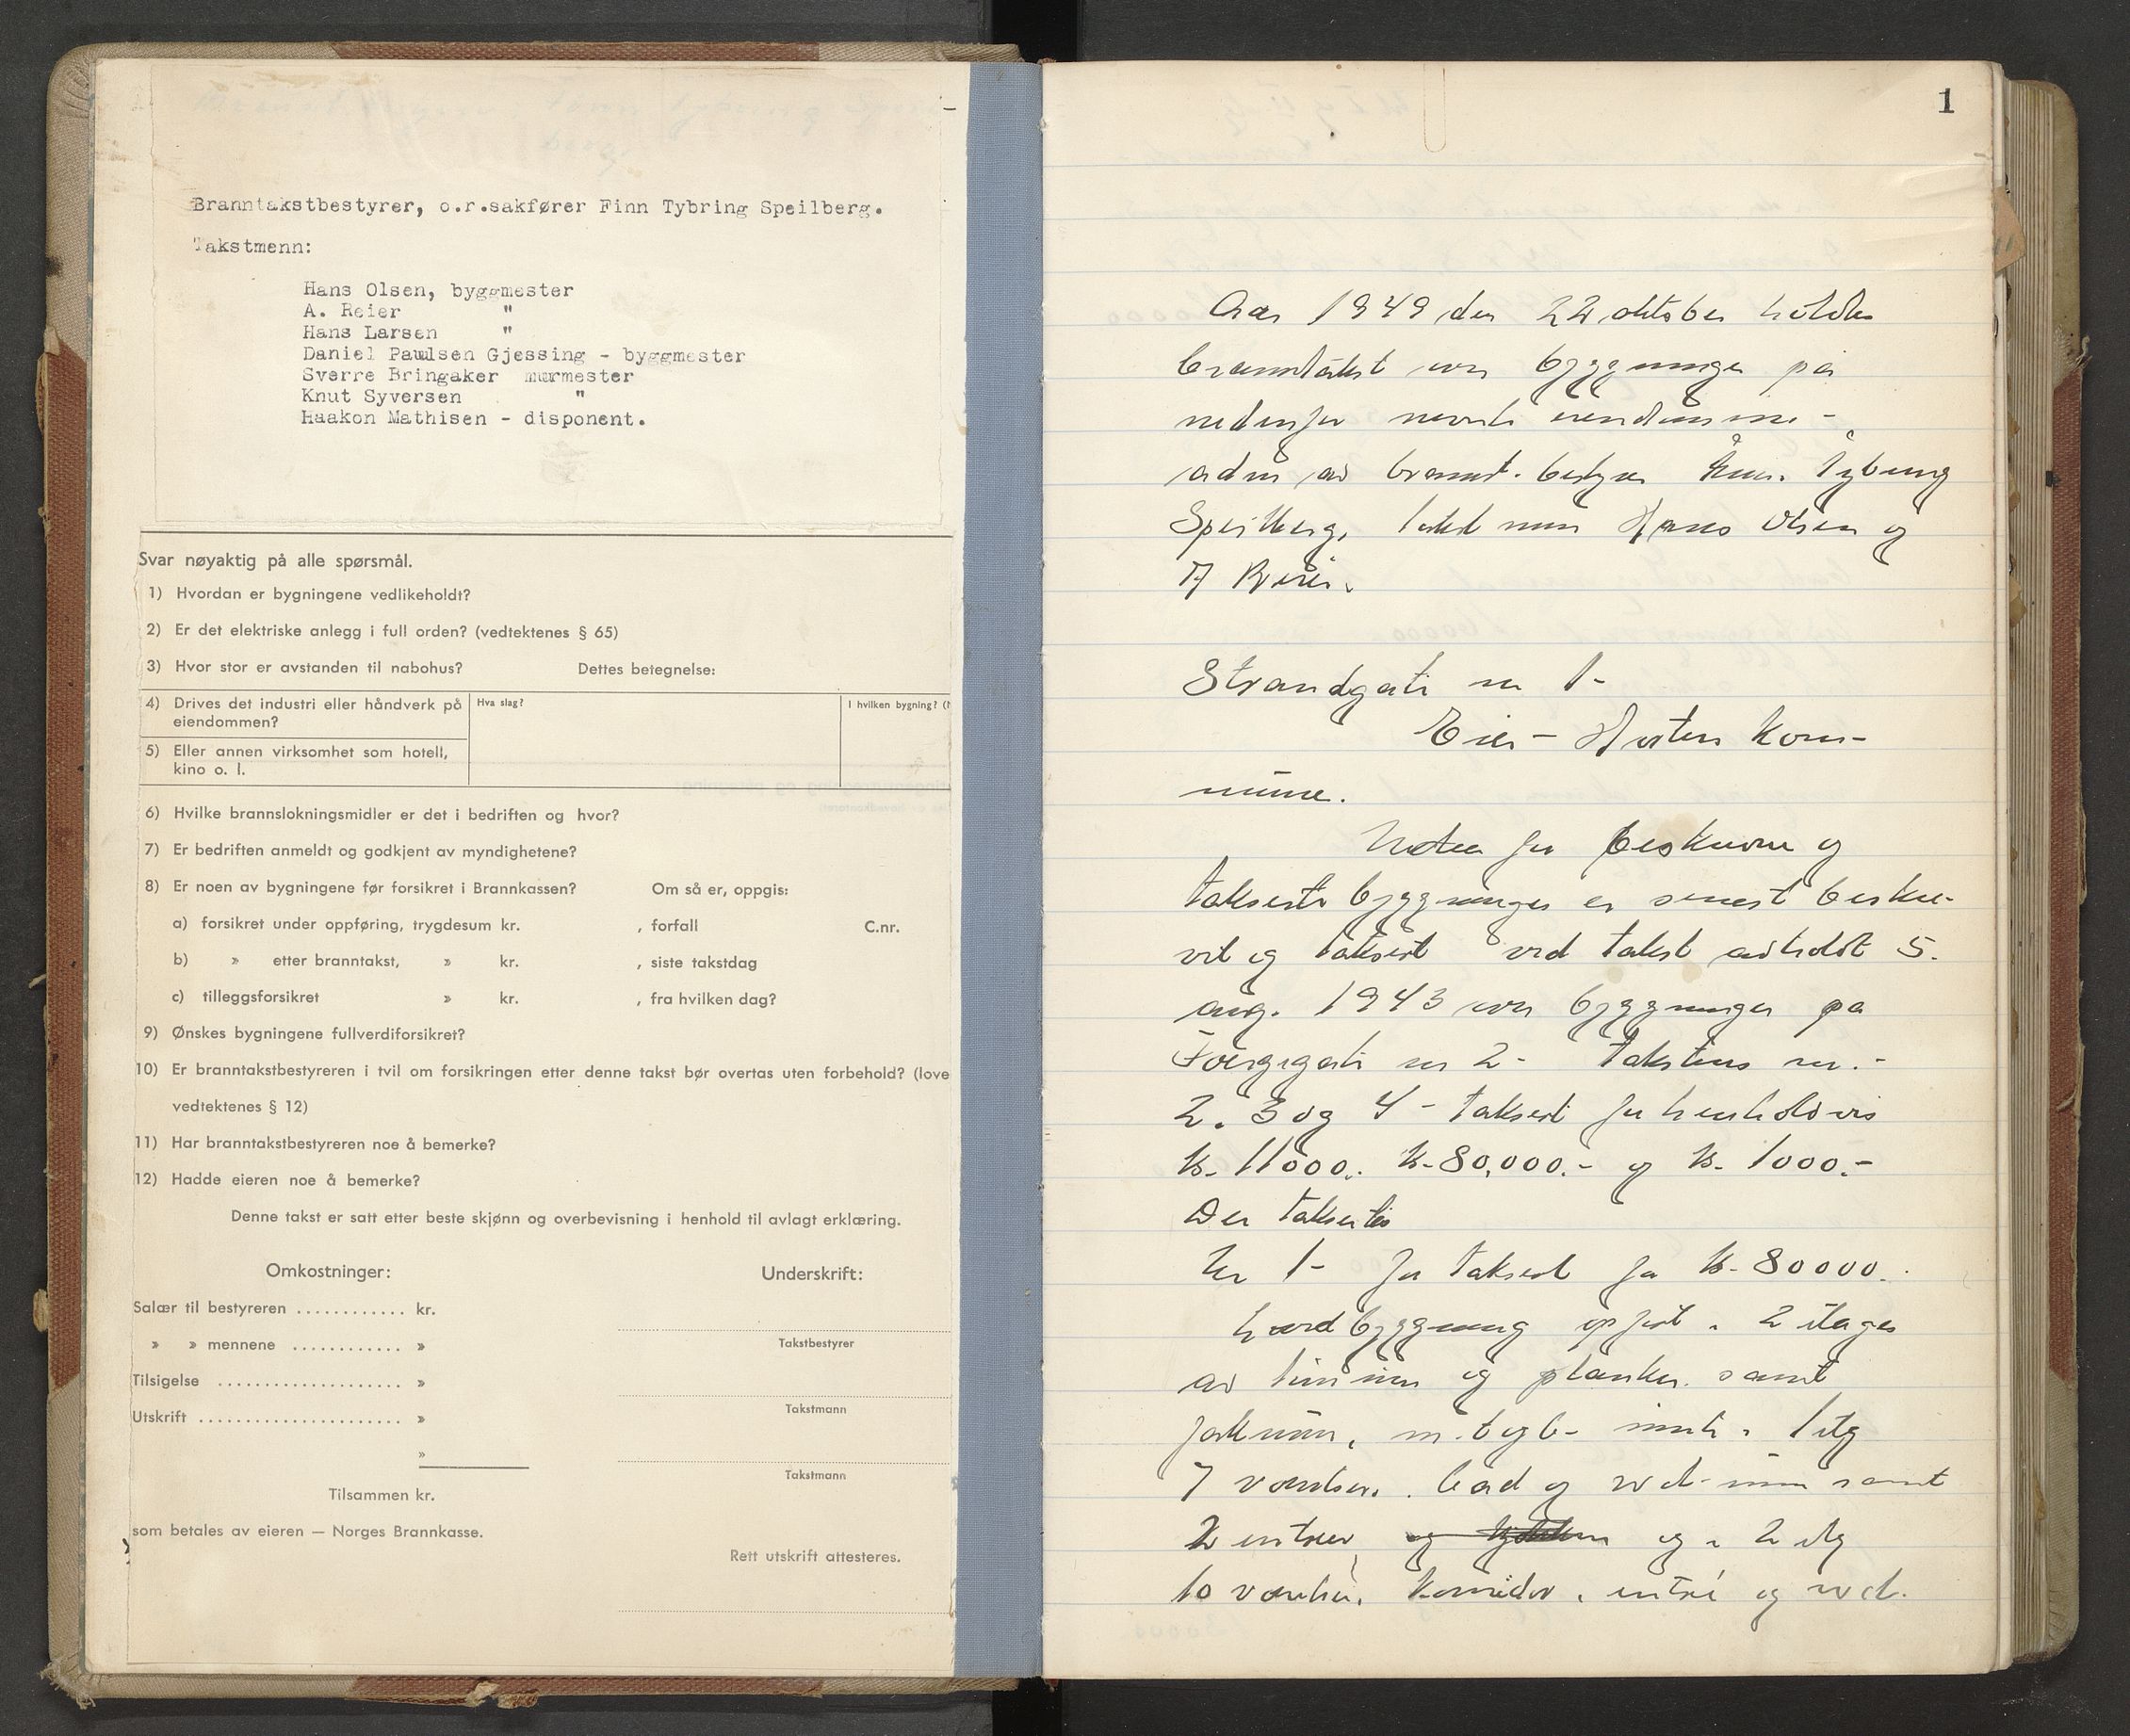 Branntakstbestyrer, o.r.sakfører Finn Tybring Speilberg.
Takstmenn:
Hans Olsen, byggmester
A. Reier "
Hans Larsen "
Daniel Paulsen Gjessing - byggmester
Sverre Bringaker murmester
Knut Syversen "
Haakon Mathisen - disponent.
Svar nøyaktig på alle spørsmål.
1) Hvordan er bygningene vedlikeholdt?
2) Er det elektriske anlegg i full orden? (vedtektenes § 65)
3) Hvor stor er avstanden til nabohus? Dettes betegnelse:
4) Drives det industri eller håndverk på Hva slag? I hvilken bygning? (
eiendommen?
5) Eller annen virksomhet som hotell,
kino o. l.
6) Hvilke brannslokningsmidler er det i bedriften og hvor?
7) Er bedriften anmeldt og godkjent av myndighetene?
8) Er noen av bygningene før forsikret i Brannkassen? Om så er, oppgis:
a) forsikret under oppføring, trygdesum kr. , forfall C.nr.
b) » etter branntakst, » kr. , siste takstdag
c) tilleggsforsikret » kr. , fra hvilken dag?
9) Ønskes bygningene fullverdiforsikret?
10) Er branntakstbestyreren i tvil om forsikringen etter denne takst bør overtas uten forbehold? (love
vedtektenes § 12)
11) Har branntakstbestyreren noe å bemerke?
12) Hadde eieren noe å bemerke?
Denne takst er satt etter beste skjønn og overbevisning i henhold til avlagt erklæring.
Omkostninger: Underskrift:
Salær til bestyreren ............ kr.
Takstbestyrer
» » mennene ............ »
Tilsigelse .................... »
Takstmann
Utskrift ...................... »
»
Takstmann
Tilsammen kr.
som betales av eieren — Norges Brannkasse.
Rett utskrift attesteres.
1
Aar 1949 den 22 oktober holdtes
branntakst over bygninger på
nedenfor nevnte eiendomme -
adm av brannt. bestyrer Tybring
Speilberg, takstmenn Hans Olsen og
A Reier.
Strandgate nr 1-
Eier - Horten Kom-
mune.
før beskrevne og
takserte bygninger er senest beskre-
vet og taksert ved takst avholdt 5.
aug. 1943 over bygninger på
nr 2 - takstens nr. -
2. 3 og 4 - taksert for henholdsvis
kr. 11000. kr. 80,000.- og kr. 1000.-
Der takseres
Nr 1 - før taksert for kr. 80000.
bygning opført i 2 etages
av tømmer og planker samt
m. teglt. innh. i 1 etg
7 værelser, bad og w c-rum samt
2 entreer og i 2 etg
10 værelser, korridor, entré og w c.